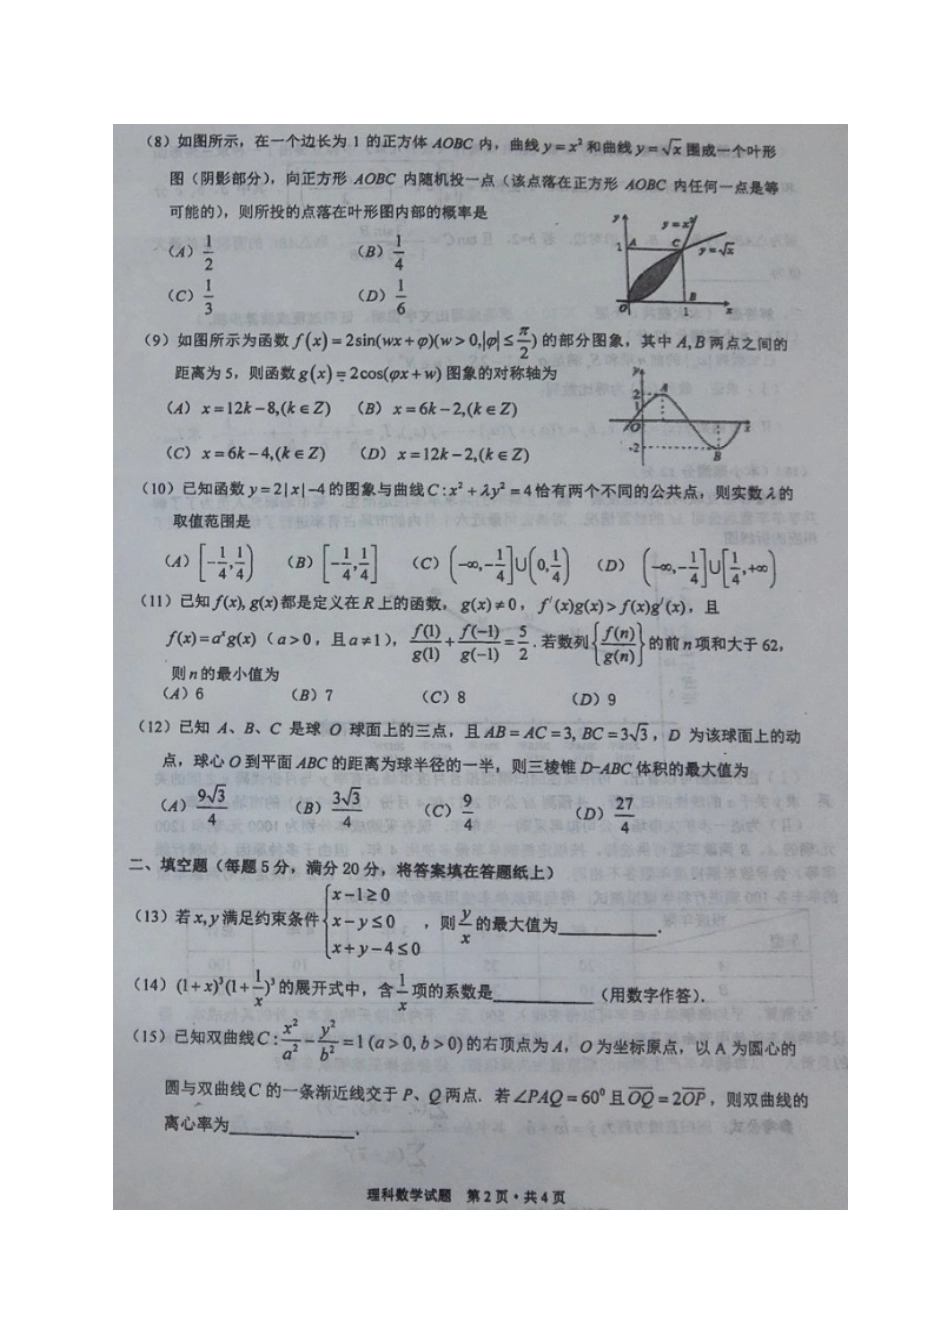 (8) 如图所示，在一个边长为 1 的正方体 AOBC 内，曲线 y=x² 和曲线 y=√x 围成一个叶形
图（阴影部分），向正方形 AOBC 内随机投一点（该点落在正方形 AOBC 内任何一点是等
可能的），则所投的点落在叶形图内部的概率是
(A) 1/2 (B) 1/4
(C) 1/3 (D) 1/6
y y=x² A C y=√x 1 O 1 B x
(9) 如图所示为函数 f(x)=2sin(wx+φ)(w>0,|φ|≤π/2) 的部分图象，其中 A,B 两点之间的
距离为 5，则函数 g(x)=2cos(φx+w) 图象的对称轴为
(A) x=12k-8,(k∈Z) (B) x=6k-2,(k∈Z)
(C) x=6k-4,(k∈Z) (D) x=12k-2,(k∈Z)
y 2 A 1 O x -2 B
(10) 已知函数 y=2|x|-4 的图象与曲线 C:x²+λy²=4 恰有两个不同的公共点，则实数 λ 的
取值范围是
(A) [-1/4,1/4) (B) [-1/4,1/4] (C) (-∞,-1/4]∪(0,1/4) (D) (-∞,-1/4]∪[1/4,+∞)
(11) 已知 f(x), g(x) 都是定义在 R 上的函数，g(x)≠0，f′(x)g(x)>f(x)g′(x)，且
f(x)=aˣg(x)（a>0，且 a≠1），f(1)/g(1)+f(-1)/g(-1)=5/2.若数列{f(n)/g(n)}的前 n 项和大于 62，
则 n 的最小值为
(A) 6 (B) 7 (C) 8 (D) 9
(12) 已知 A、B、C 是球 O 球面上的三点，且 AB=AC=3, BC=3√3，D 为该球面上的动
点，球心 O 到平面 ABC 的距离为球半径的一半，则三棱锥 D-ABC 体积的最大值为
(A) 9√3/4 (B) 3√3/4 (C) 9/4 (D) 27/4
二、填空题（每题 5 分，满分 20 分，将答案填在答题纸上）
(13) 若 x,y 满足约束条件{x-1≥0 x-y≤0 x+y-4≤0，则 y/x 的最大值为____.
(14) (1+x)³(1+1/x)³ 的展开式中，含 1/x 项的系数是____（用数字作答）.
(15) 已知双曲线 C:x²/a²-y²/b²=1(a>0,b>0) 的右顶点为 A，O 为坐标原点，以 A 为圆心的
圆与双曲线 C 的一条渐近线交于 P、Q 两点. 若 ∠PAQ=60⁰ 且 OQ=2OP，则双曲线的
离心率为____.
理科数学试题 第 2 页·共 4 页